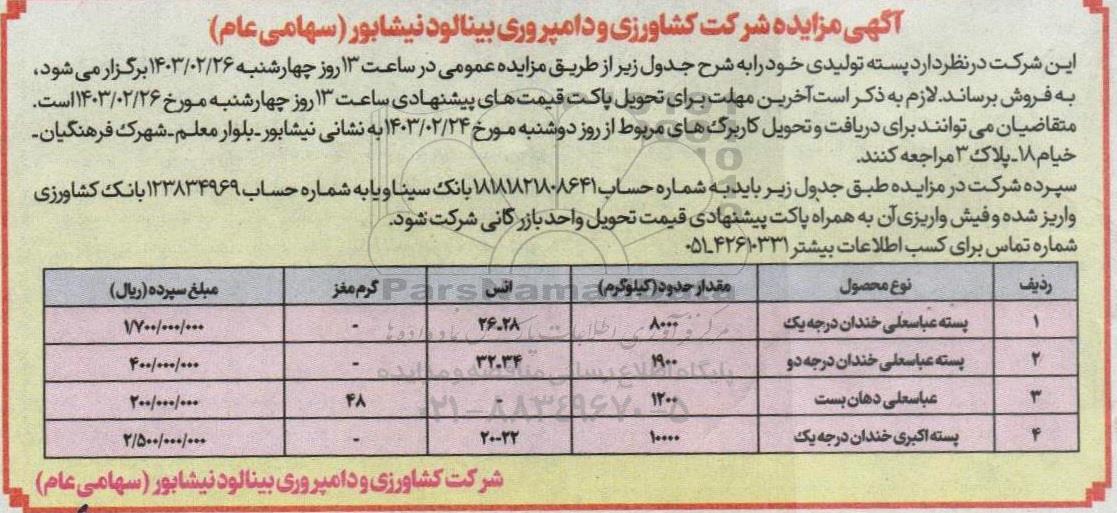 آگهی مزایده شرکت کشاورزی و دامپروری بینالود نیشابور (سهامی عام)
این شرکت در نظر دارد پسته تولیدی خود را به شرح جدول زیر از طریق مزایده عمومی در ساعت ۱۳ روز چهارشنبه ۱۴۰۳/۰۲/۲۶ برگزار می شود،
به فروش برساند. لازم به ذکر است آخرین مهلت برای تحویل پاکت قیمت های پیشنهادی ساعت ۱۳ روز چهارشنبه مورخ ۱۴۰۳/۰۲/۲۶ است.
متقاضیان می توانند برای دریافت و تحویل کاربرگ های مربوط از روز دوشنبه مورخ ۱۴۰۳/۰۲/۲۴ به نشانی نیشابور ـ بلوار معلم ـ شهرک فرهنگیان ـ
خیام ۱۸ ـ پلاک ۳ مراجعه کنند.
سپرده شرکت در مزایده طبق جدول زیر باید به شماره حساب ۱۸۱۸۱۸۲۱۸۰۸۶۴۱ بانک سینا و یا به شماره حساب ۱۲۳۸۳۴۹۶۹ بانک کشاورزی
واریز شده و فیش واریزی آن به همراه پاکت پیشنهادی قیمت تحویل واحد بازرگانی شرکت شود.
شماره تماس برای کسب اطلاعات بیشتر ۴۲۶۱۰۳۳۱ـ۰۵۱
ردیف نوع محصول مقدار حدود (کیلوگرم) انس گرم مغز مبلغ سپرده (ریال)
۱ پسته عباسعلی خندان درجه یک ۸۰۰۰ ۲۶-۲۸ - ۱/۷۰۰/۰۰۰/۰۰۰
۲ پسته عباسعلی خندان درجه دو ۱۹۰۰ ۳۲-۳۴ - ۴۰۰/۰۰۰/۰۰۰
۳ عباسعلی دهان بست ۱۲۰۰ - ۴۸ ۲۰۰/۰۰۰/۰۰۰
۴ پسته اکبری خندان درجه یک ۱۰۰۰۰ ۲۰-۲۲ - ۲/۵۰۰/۰۰۰/۰۰۰
شرکت کشاورزی و دامپروری بینالود نیشابور (سهامی عام)
ParsNamadData
مرکز فرآوری اطلاعات پارس نماد داده ها
پایگاه اطلاع رسانی مناقصه و مزایده
۰۲۱-۸۸۳۴۹۶۷۰-۵